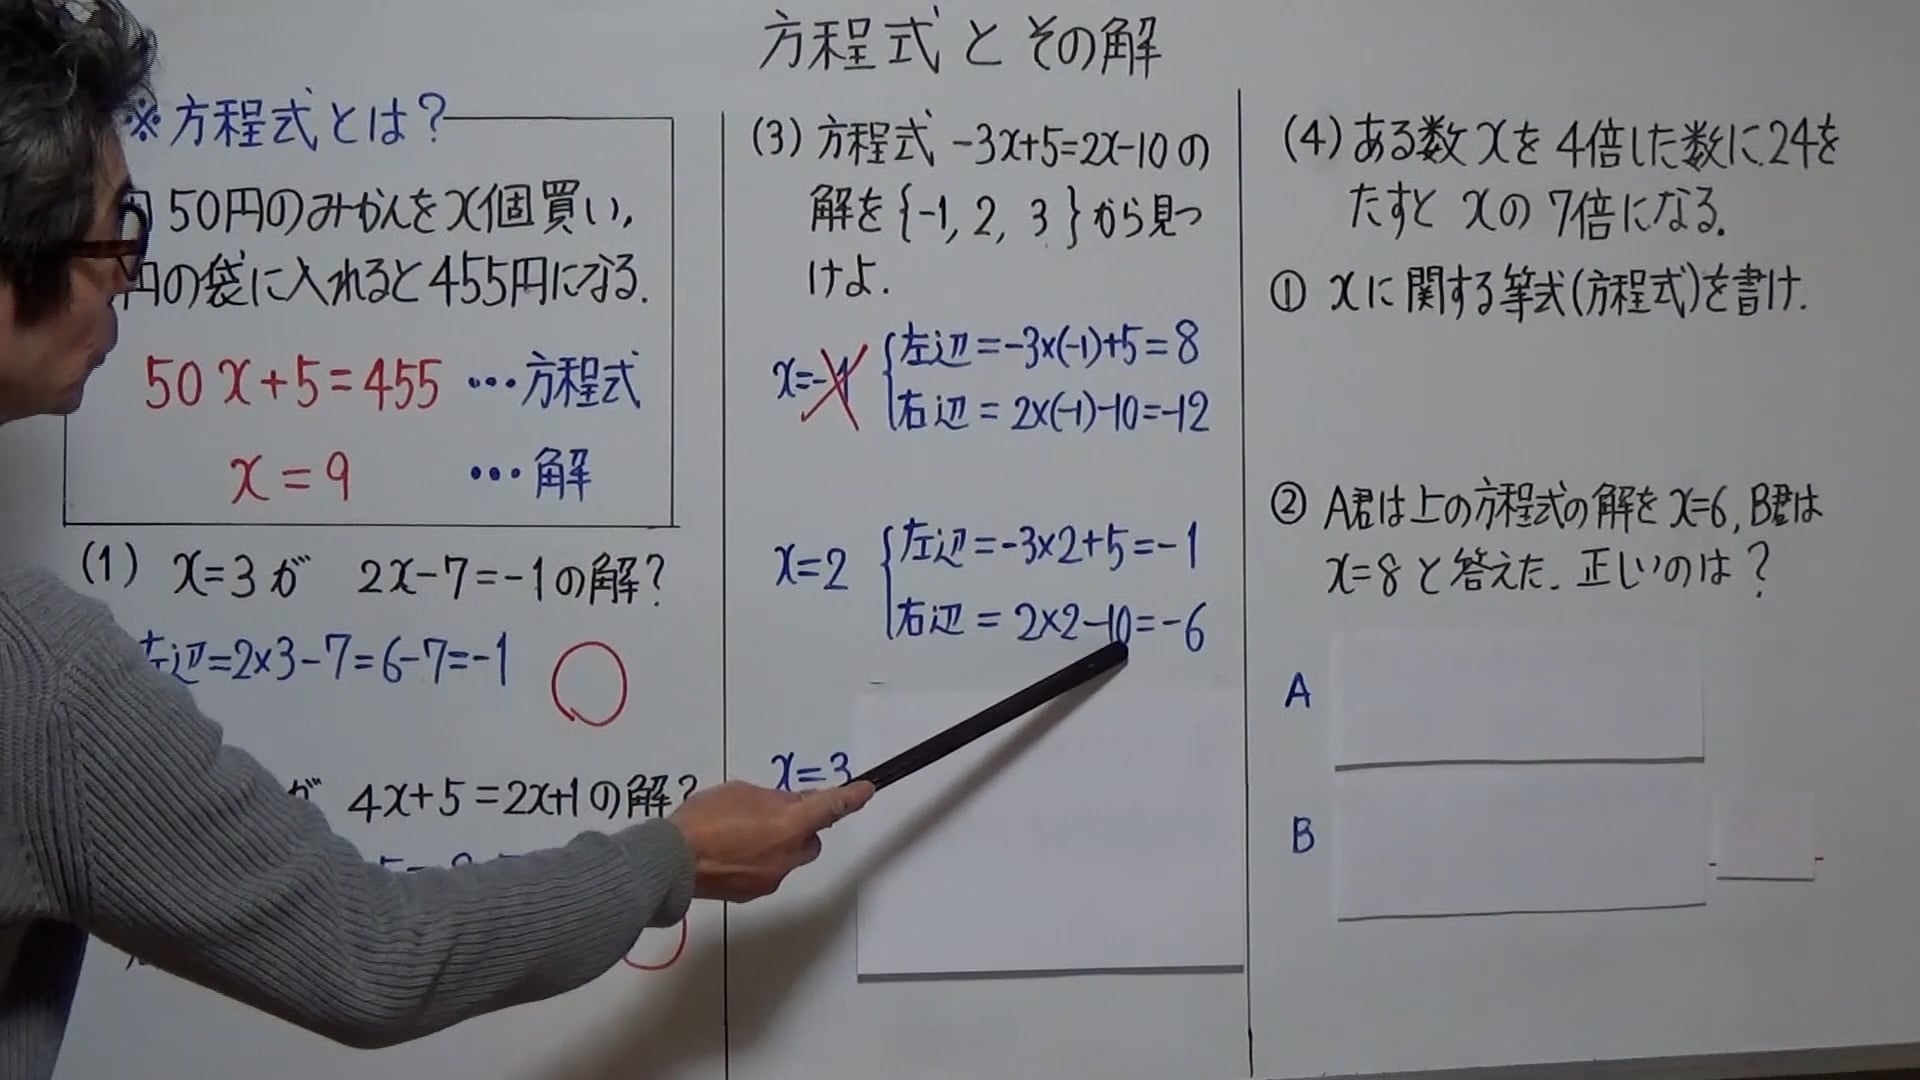 方程式とその解
※方程式とは?
50円のみかんをx個買い,
円の袋に入れると455円になる.
50x+5=455 …方程式
x=9 …解
(1) x=3が 2x-7=-1の解?
左辺=2×3-7=6-7=-1
が 4x+5=2x+1の解?
(3) 方程式 -3x+5=2x-10の
解を{-1, 2, 3}から見つ
けよ.
x=-1 左辺=-3×(-1)+5=8
右辺=2×(-1)-10=-12
x=2 左辺=-3×2+5=-1
右辺=2×2-10=-6
x=3
(4) ある数xを4倍した数に24を
たすとxの7倍になる.
① xに関する等式(方程式)を書け.
② A君は上の方程式の解をx=6, B君は
x=8と答えた. 正しいのは?
A
B